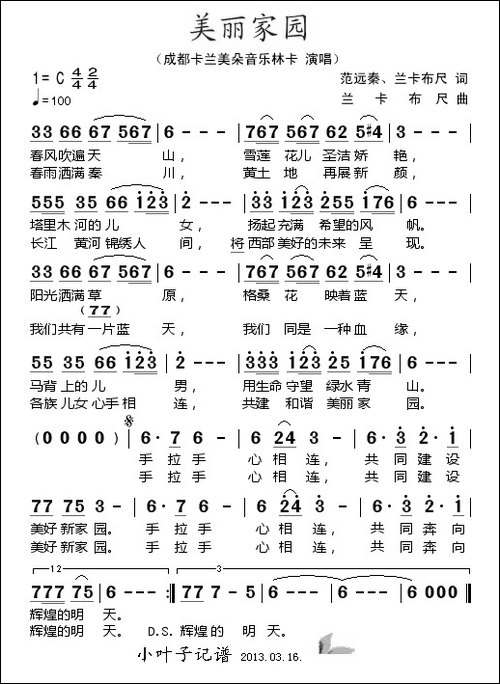 美丽家园
（成都卡兰美朵音乐林卡 演唱）
1=C 4/4 2/4
范远秦、兰卡布尺 词
♩=100
兰 卡 布 尺 曲
33 66 67 567 | 6 - - - | 767 567 62 5#4 | 3 - - - |
春风吹遍天 山， 雪莲 花儿 圣洁娇 艳，
春雨洒满秦 川， 黄土 地 再展新 颜，
555 35 66 123 | 2 - - - | 333 123 255 176 | 6 - - - |
塔里木 河的 儿 女， 扬起充满 希望的风 帆。
长江 黄河 锦绣人 间， 将 西部 美好的未来 呈 现。
33 66 67 567 | 6 - - - | 767 567 62 5#4 | 3 - - - |
阳光洒满草 原， 格桑 花 映着蓝 天，
(77)
我们共有一片蓝 天， 我们 同是 一种血 缘，
55 35 66 123 | 2 - - - | 333 123 25 176 | 6 - - - |
马背 上的 儿 男， 用生命 守望 绿水青 山。
各族 儿女 心手 相 连， 共建 和谐 美丽家 园。
(0 0 0 0) | 6· 7 6 - | 6 24 3 - | 6· 3 2· 1 |
手 拉 手 心 相 连， 共 同 建 设
手 拉 手 心 相 连， 共 同 建 设
77 75 3 - | 6· 7 6 - | 6 24 3 - | 6· 3 2· 1 |
美好 新家 园。 手 拉 手 心 相 连， 共 同 奔 向
美好 新家 园。 手 拉 手 心 相 连， 共 同 奔 向
12 3
777 75 | 6 - - - :| 77 7 - 5 | 6 - - - | 6 - - - | 6 0 0 0 ||
辉煌的明 天。
辉煌的明 天。 D.S. 辉煌的 明 天。
小叶子记谱 2013.03.16.